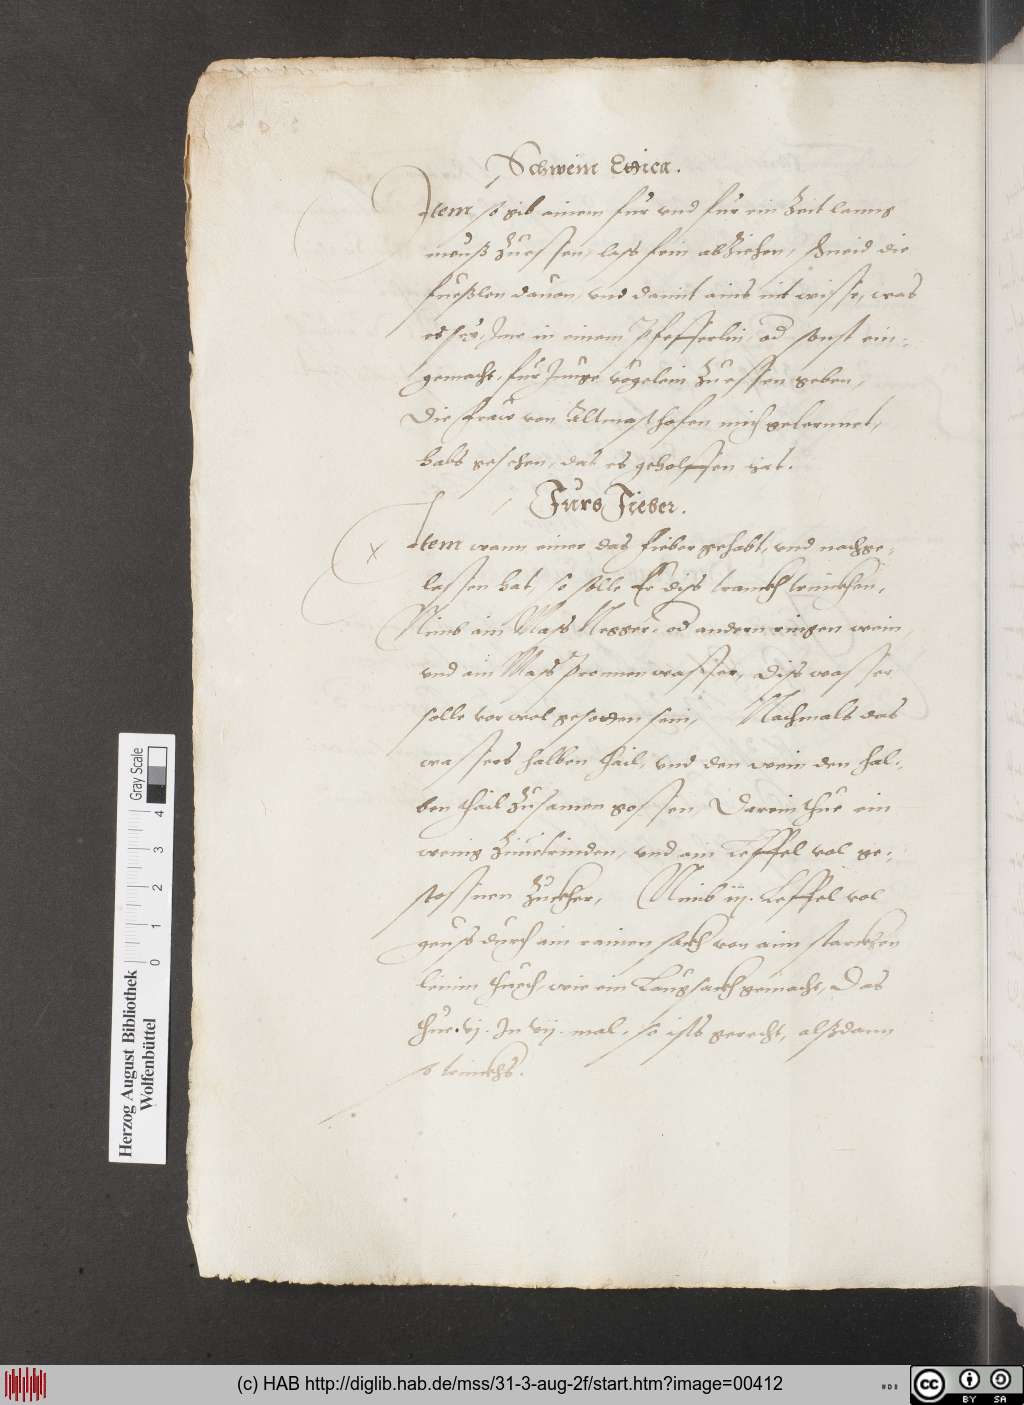 Schwein Ettica.
Item so gib einem fur vnd fur ein Zeit lanng
meuß Zuessen, lass sein abZiehen, schneid die
fueßlen dauon, vnd damit ains nit wisse, was
es sey, Ime in einem Pfefferlin, od sonst ein-
gemacht, für Junge vögelein Zuessen geben,
Die fraw von mich gelernnet,
habs gesehen, das es geholffen hat.
Furs Fieber.
x Item wann einer das fieber gehabt, vnd nachge-
lassen hat, so solle Er diss tranckh trinckhen,
Nimb ain Mass Negger, od andern ringen wein,
vnd ain Mass Pronnenwasser, diss wasser
solle vor wol gesotten sein, Nachmals das
wassers halben thail, vnd den wein den hal-
ben thail Zusamen gossen, Darein thue ein
wenig Zimetrinden, vnd ain Leffel vol ge-
stossnen Zuckher, Nimb iij. Leffel vol
geuss durch ain rainen sackh von aim starckhen
leinin thuech, wie ein Laugsackh gemacht, Das
thue. vj. In vij. mal, so ists gerecht, alßdann
so trinckhs.
Gray Scale
0 1 2 3 4
Herzog August Bibliothek
Wolfenbüttel
(c) HAB http://diglib.hab.de/mss/31-3-aug-2f/start.htm?image=00412
cc BY SA